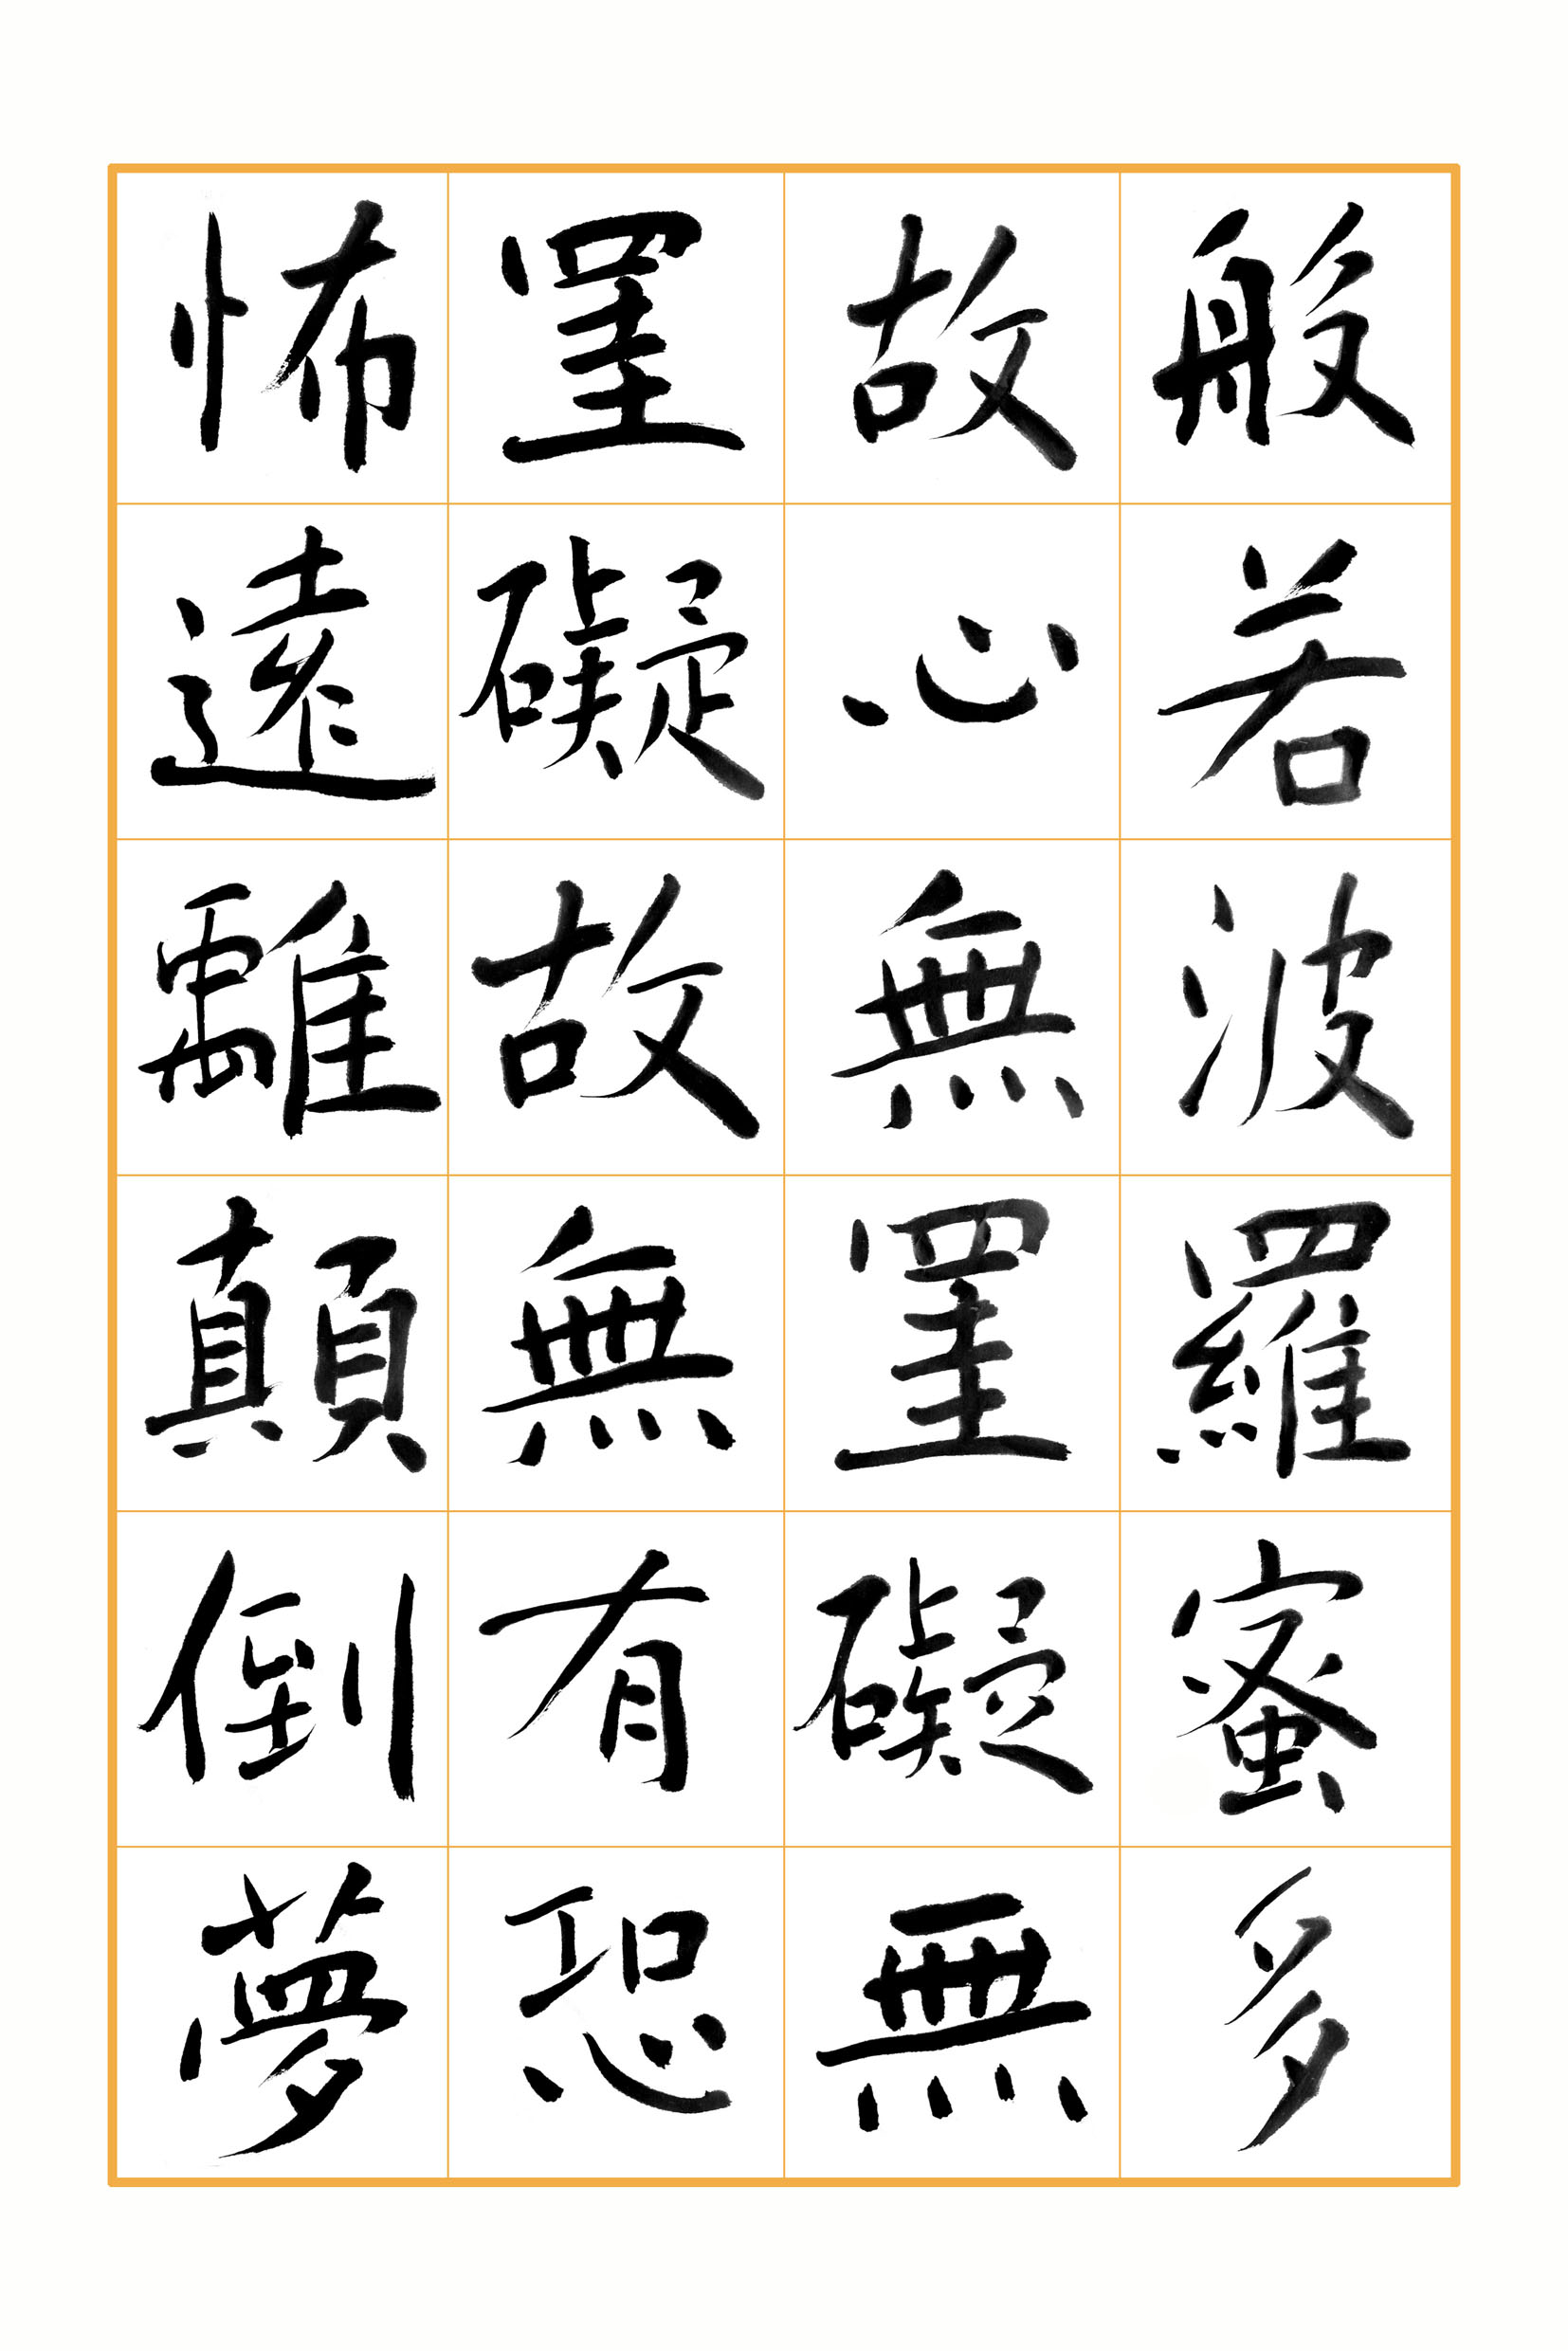 般若波羅蜜多
故心無罣礙無
罣礙故無有恐
怖遠離顛倒夢